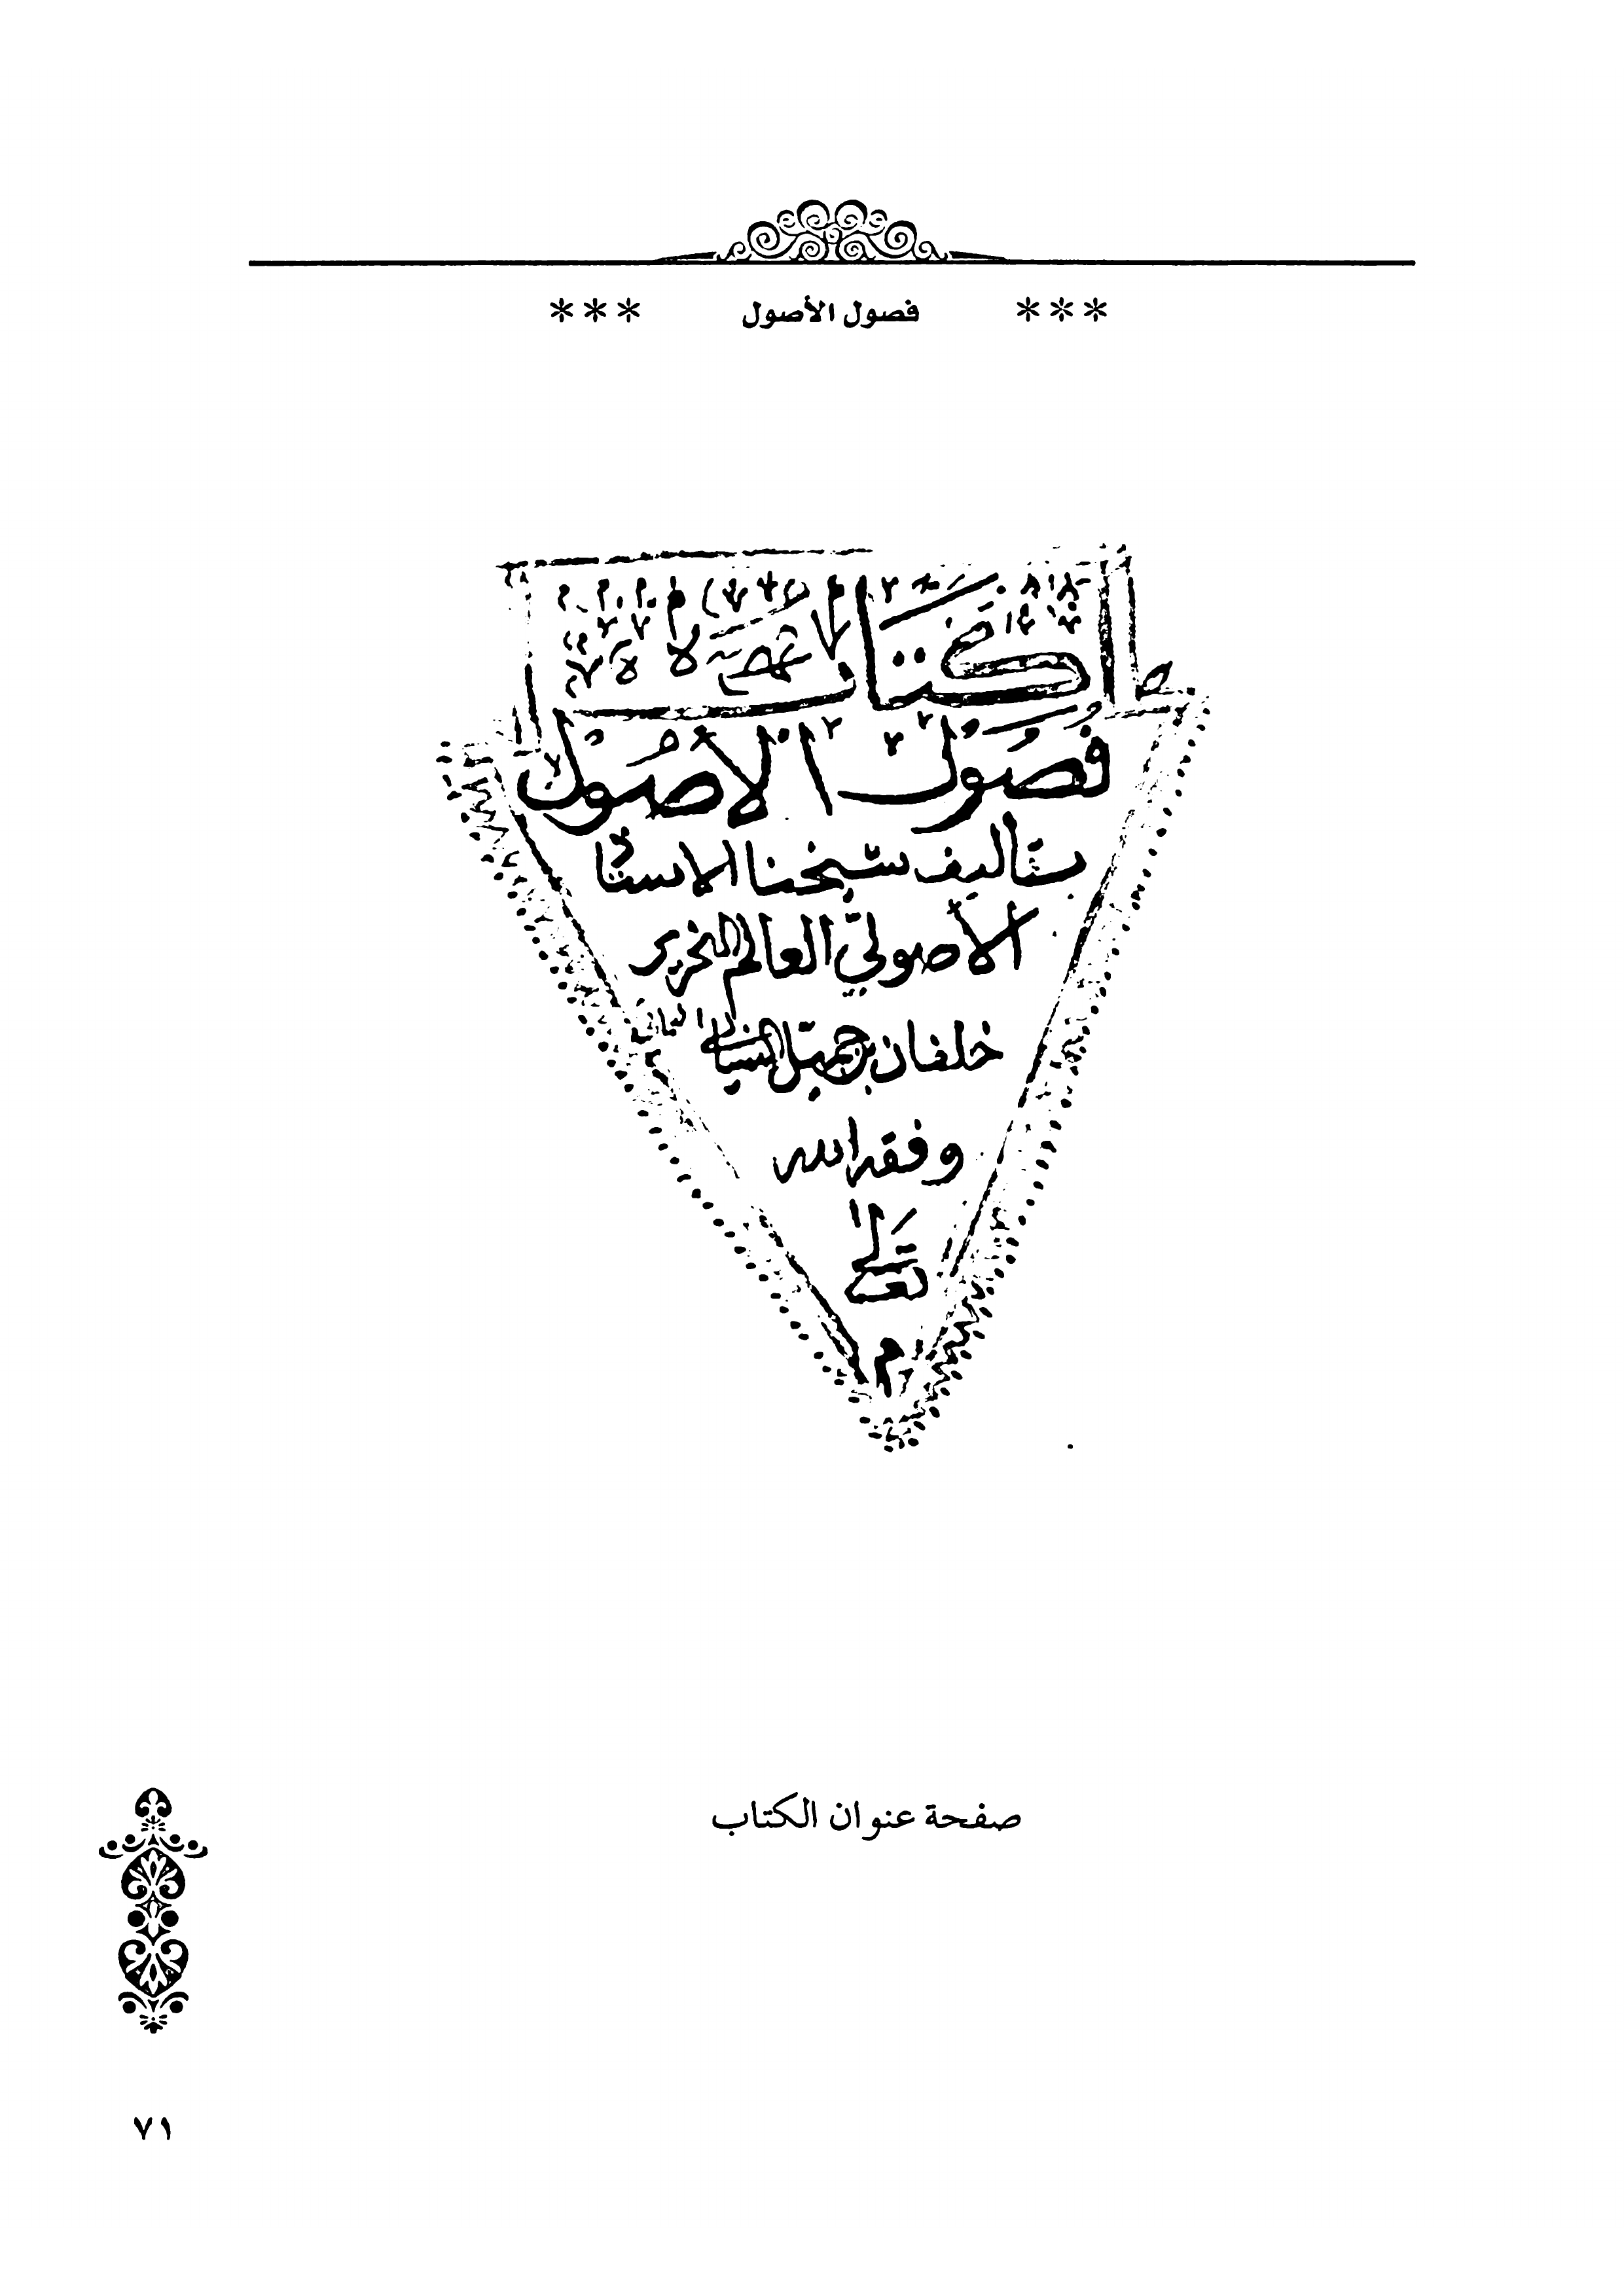 *** فصول الأصول ***
كتاب
فصول الأصول
تأليف شيخنا الاستاذ
الأصولي العالم النحرير
خلفان بن جميل السيابي
وفقه الله
تعالى
م
صفحة عنوان الكتاب
٧١